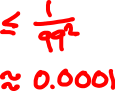 ≤ 1/99²
≈ 0.0001